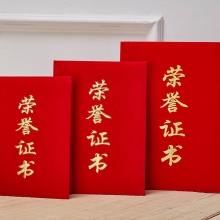 荣誉证书
荣誉证书
荣誉证书